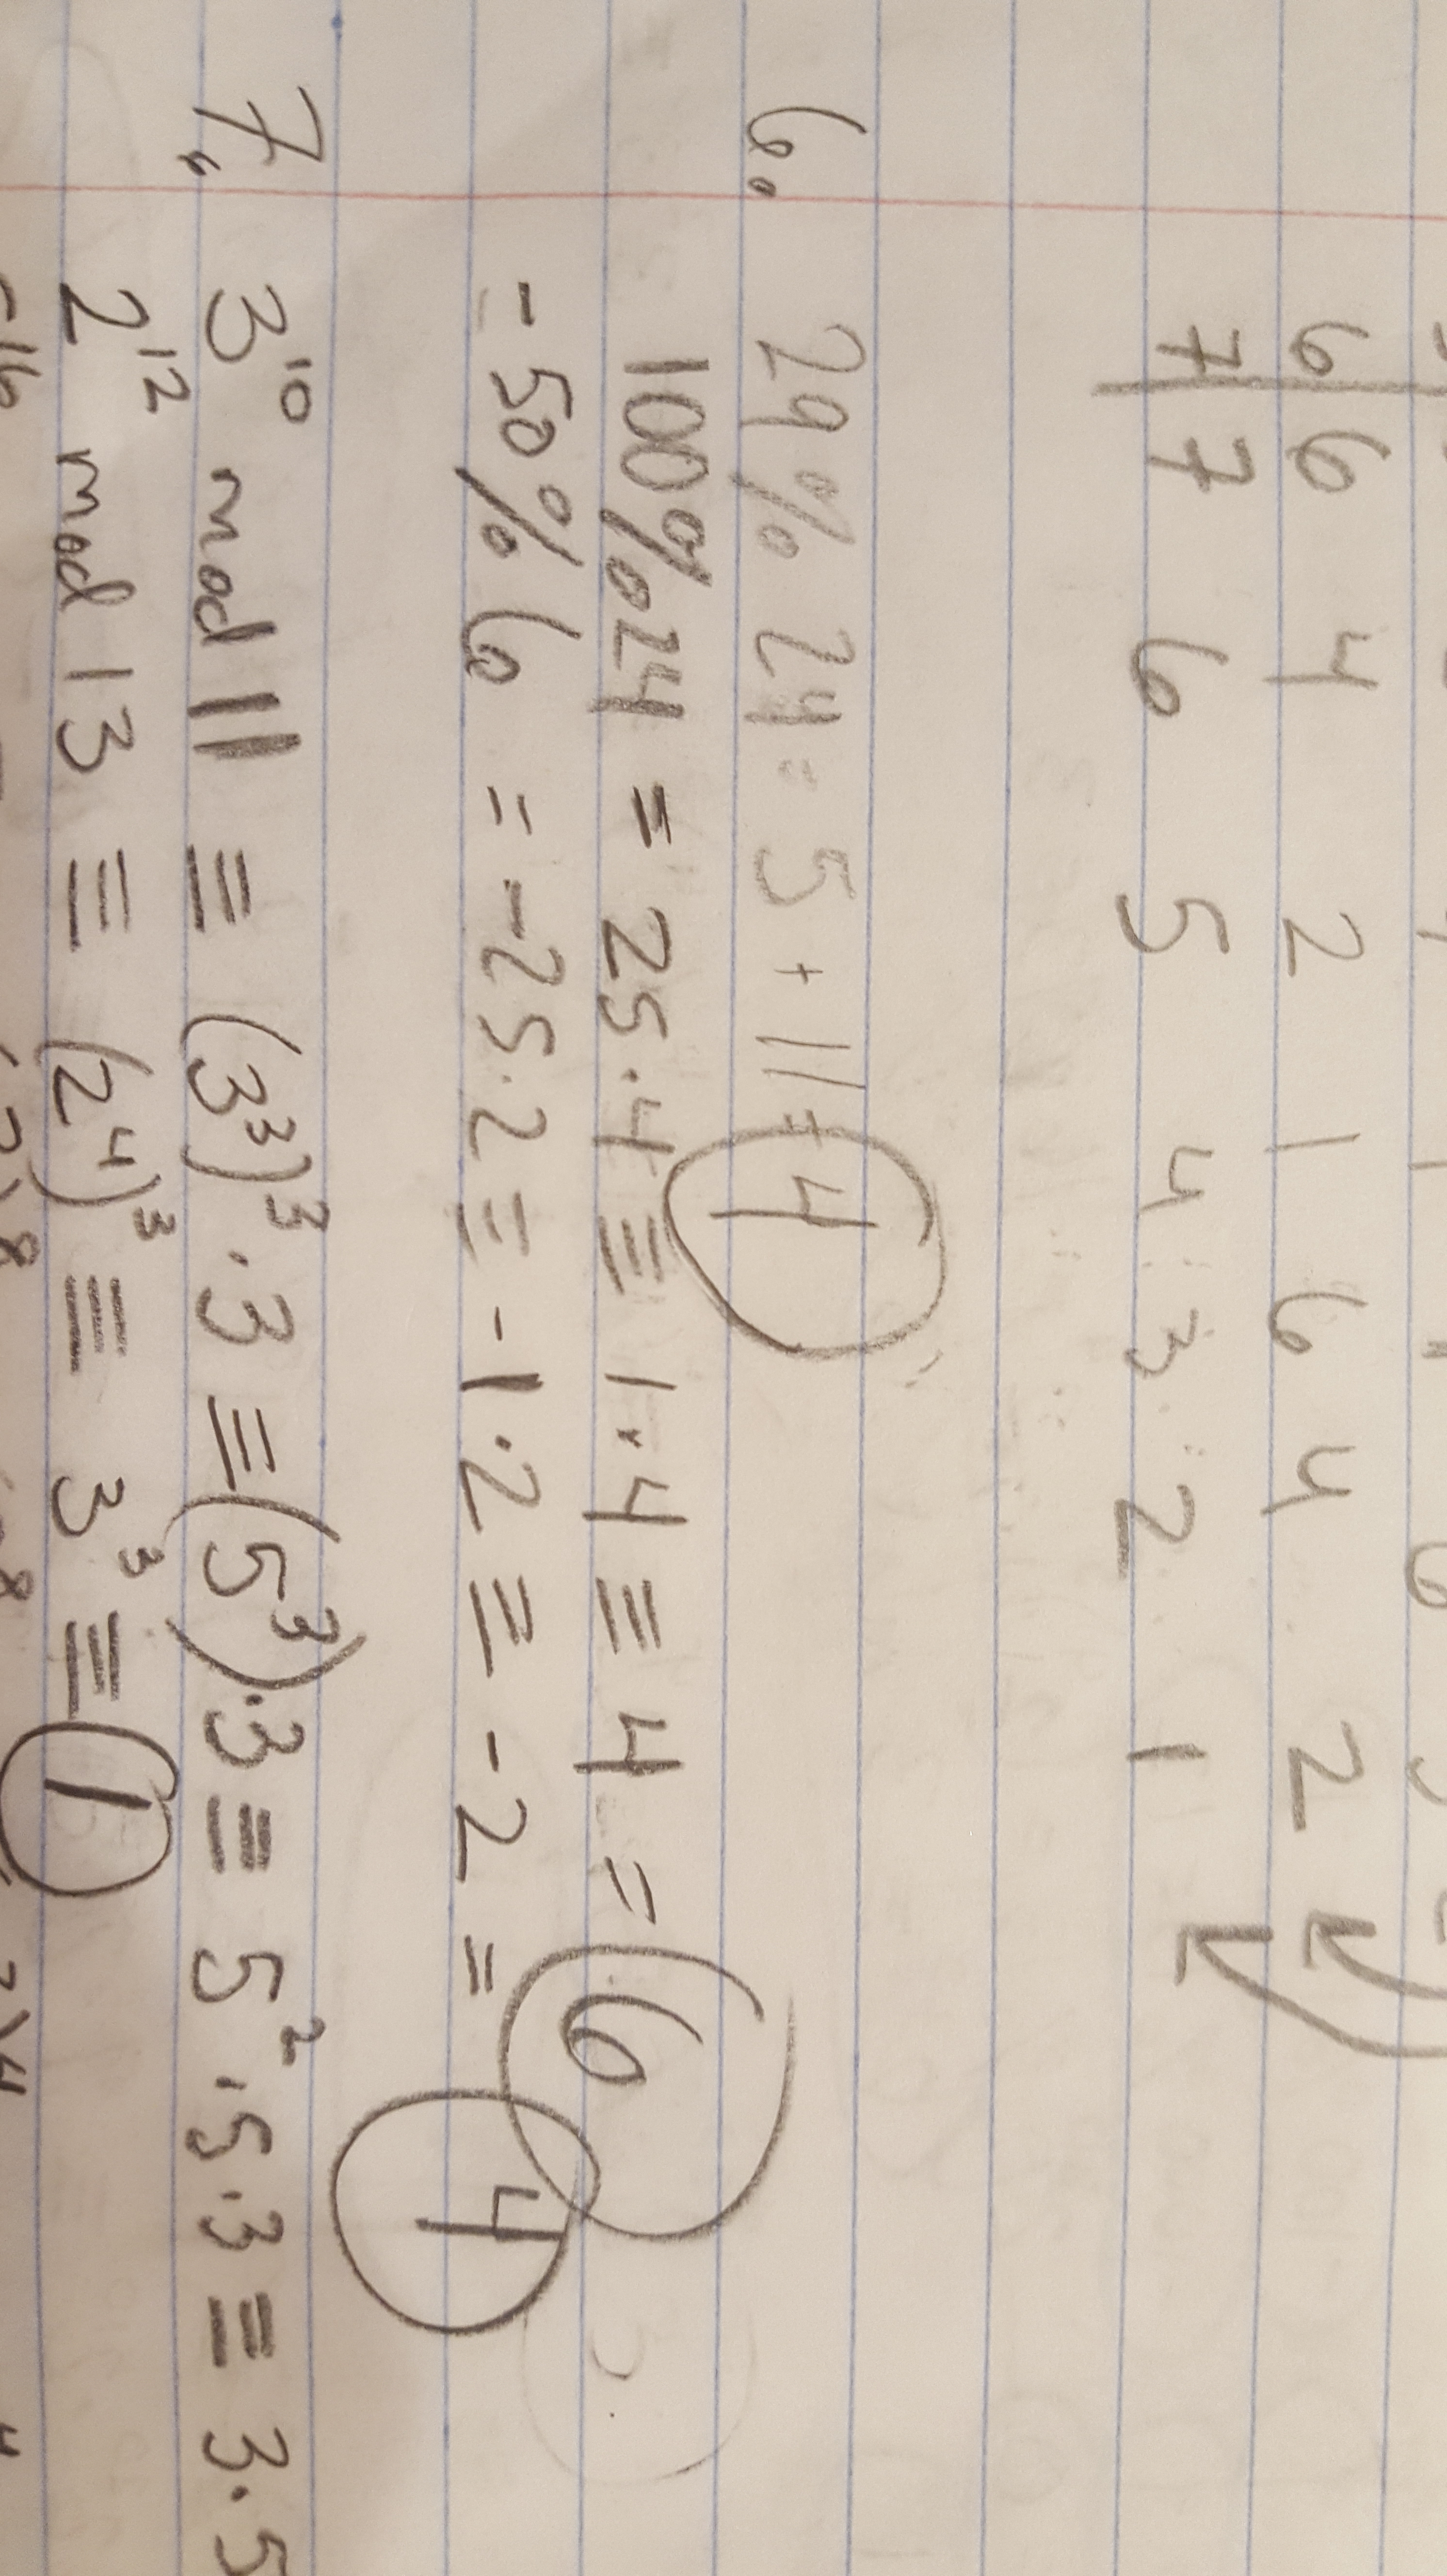 6 6 4 2 1 6 4 2
7 7 6 5 4 3 2 1
6. 29 % 24 = 5 + 11 = 4
100 % 24 = 25 · 4 ≡ 1 · 4 ≡ 4 = 6
- 50 % 6 = -25 · 2 ≡ -1 · 2 ≡ -2 = 4
7. 3¹⁰ mod 11 ≡ (3³)³ · 3 ≡ (5³) · 3 ≡ 5² · 5 · 3 ≡ 3 · 5
2¹² mod 13 ≡ (2⁴)³ ≡ 3³ ≡ 1